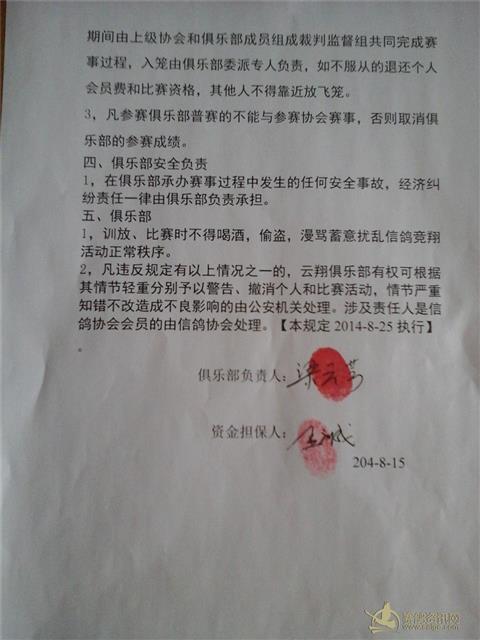 期间由上级协会和俱乐部成员组成裁判监督组共同完成赛
事过程，入笼由俱乐部委派专人负责，如不服从的退还个人
会员费和比赛资格，其他人不得靠近放飞笼。
3，凡参赛俱乐部普赛的不能与参赛协会赛事，否则取消俱
乐部的参赛成绩。
四、俱乐部安全负责
1，在俱乐部承办赛事过程中发生的任何安全事故，经济纠
纷责任一律由俱乐部负责承担。
五、俱乐部
1，训放、比赛时不得喝酒，偷盗，漫骂蓄意扰乱信鸽竞翔
活动正常秩序。
2，凡违反规定有以上情况之一的，云翔俱乐部有权可根据
其情节轻重分别予以警告、撤消个人和比赛活动，情节严重
知错不改造成不良影响的由公安机关处理。涉及责任人是信
鸽协会会员的由信鸽协会处理。【本规定 2014-8-25 执行】
。
俱乐部负责人：梁云
资金担保人：
204-8-15